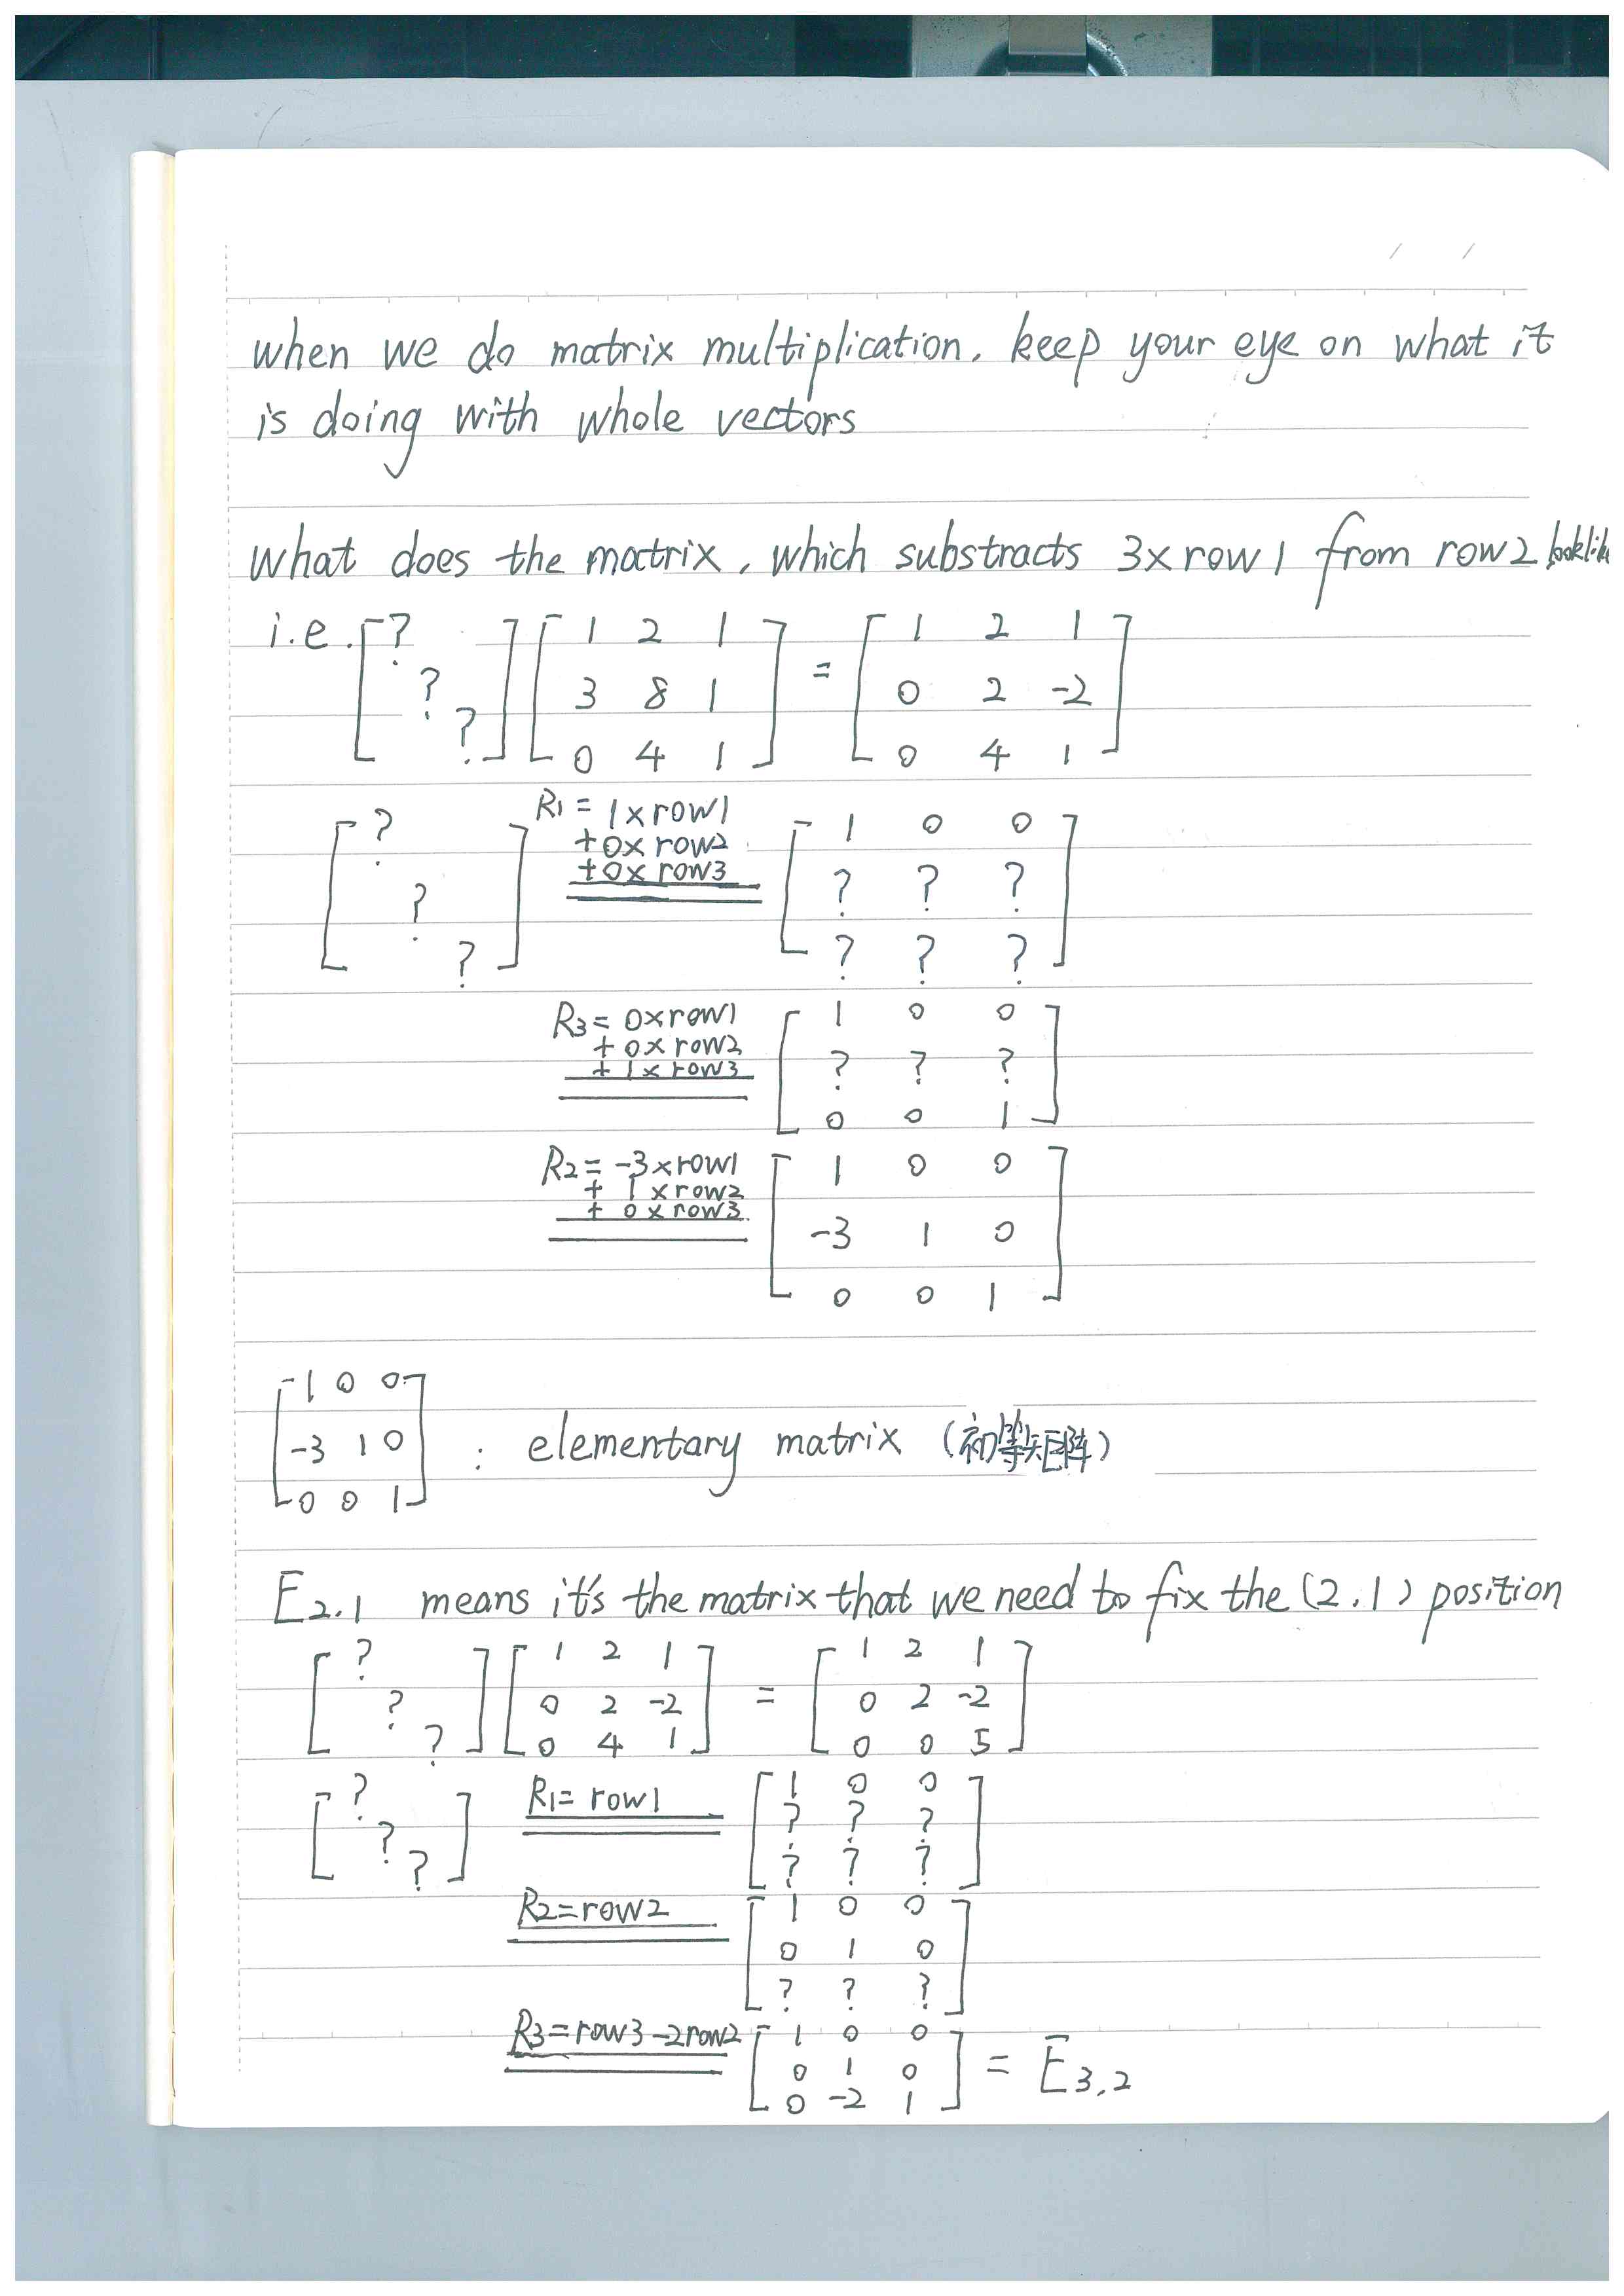 when we do matrix multiplication, keep your eye on what it
is doing with whole vectors
What does the matrix, which substracts 3×row1 from row2 look like
i.e. [? ? ?] [1 2 1; 3 8 1; 0 4 1] = [1 2 1; 0 2 -2; 0 4 1]
[? ? ?] R1 = 1×row1 +0×row2 +0×row3 [1 0 0; ? ? ?; ? ? ?]
R3 = 0×row1 + 0×row2 + 1×row3 [1 0 0; ? ? ?; 0 0 1]
R2 = -3×row1 + 1×row2 + 0×row3 [1 0 0; -3 1 0; 0 0 1]
[1 0 0; -3 1 0; 0 0 1] : elementary matrix (初等矩阵)
E2.1 means it's the matrix that we need to fix the (2.1) position
[? ? ?] [1 2 1; 0 2 -2; 0 4 1] = [1 2 1; 0 2 -2; 0 0 5]
[? ? ?] R1 = row1 [1 0 0; ? ? ?; ? ? ?]
R2 = row2 [1 0 0; 0 1 0; ? ? ?]
R3 = row3 -2row2 [1 0 0; 0 1 0; 0 -2 1] = E3,2